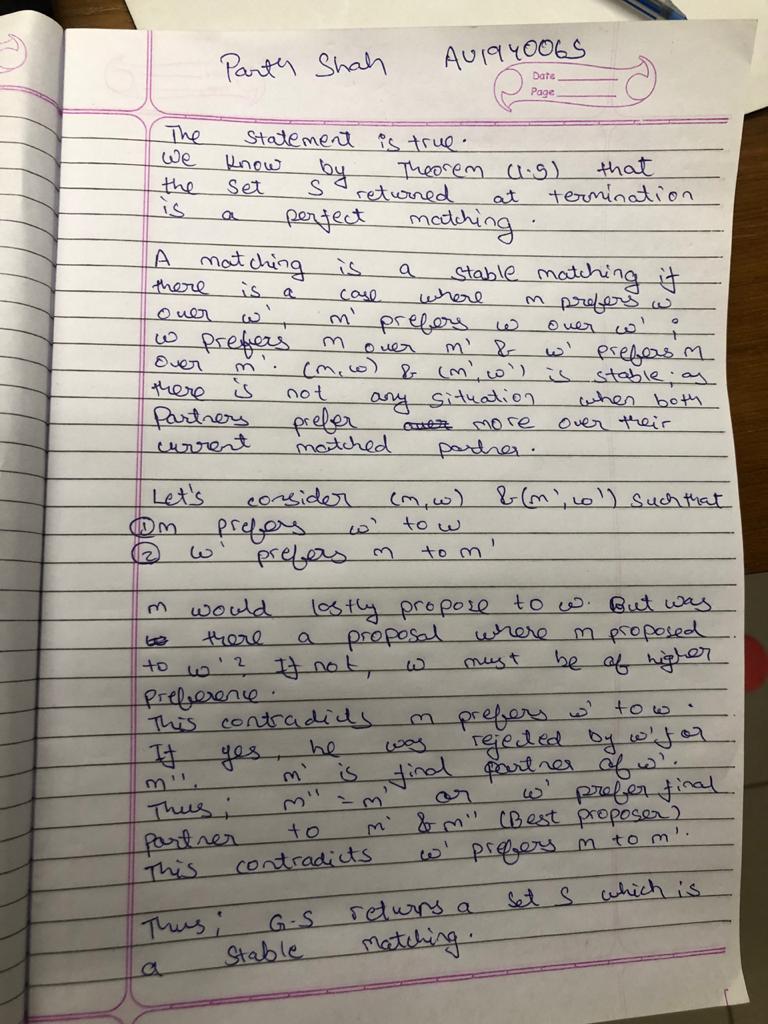 Parth Shah AU1940065
Date
Page
The statement is true.
We know by Theorem (1.9) that
the set S returned at termination
is a perfect matching.
A matching is a stable matching if
there is a case where m prefers w
over w', m' prefers w over w' ;
w prefers m over m' & w' prefers m
over m'. (m,w) & (m',w') is stable; as
there is not any situation when both
Partners prefer more over their
current matched partner.
Let's consider (m,w) & (m',w') such that
① m prefers w' to w
② w' prefers m to m'
m would lastly propose to w. But was
there a proposal where m proposed
to w'? If not, w must be of higher
preference.
This contradicts m prefers w' to w.
If yes, he was rejected by w' for
m''. m' is final partner of w'.
Thus; m'' = m' or w' prefer final
partner to m' & m'' (Best proposer)
This contradicts w' prefers m to m'.
Thus; G-S returns a set S which is
a stable matching.